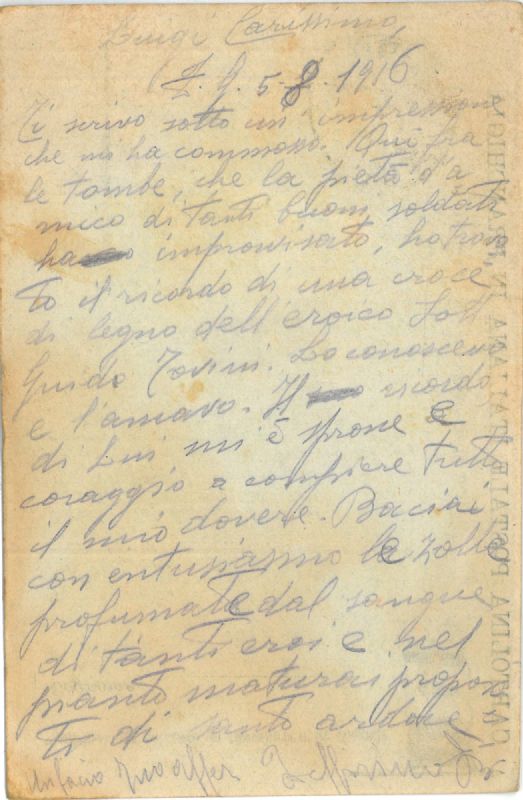 Luigi Carissimo,
Z. G. 5-8-1916
Ti scrivo sotto un' impressione
che mi ha commosso. Qui fra
le tombe, che la pietà d'a
mico di tanti buoni soldati
ha improvvisato, ho trova
to il ricordo di una croce
di legno dell'eroico Sott
Guido Tovini. Lo conoscevo
e l'amavo. Il ricordo
di Lui mi è sprone e
coraggio a compiere tutto
il mio dovere. Baciai
con entusiasmo le zolle
profumate dal sangue
di tanti eroi e nel
pianto maturai proposi
ti di santo ardore
Un bacio tuo aff
CARTOLINA POSTALE ITALIANA IN FRANCHIGIA